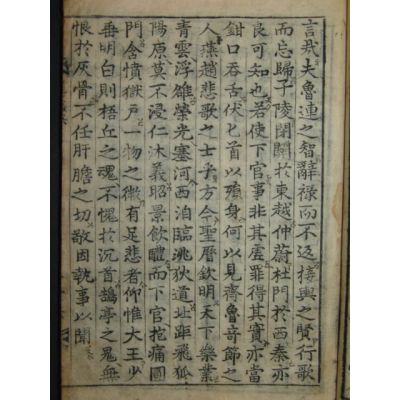 言哉夫魯連之智辭祿而不返接輿之賢行歌
而忘歸子陵閉關於東越仲蔚杜門於西秦亦
良可知也若使下官事非其虛罪得其實亦當
鉗口吞舌伏匕首以殞身何以見齊魯奇節之
人燕趙悲歌之士乎方今聖曆欽明天下樂業
青雲浮雒榮光塞河西洎臨洮狄道北距飛狐
陽原莫不浸仁沐義昭景飲醴而下官抱痛圓
門含憤獄戶一物之微有足悲者仰惟大王少
垂明白則梧丘之魂不愧於沉首鵠亭之鬼無
恨於灰骨不任肝膽之切敬因執事以聞